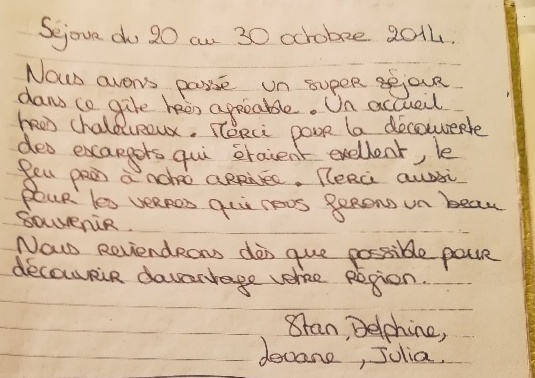 Séjour du 20 au 30 octobre 2014.
Nous avons passé un super séjour
dans ce gîte très agréable. Un accueil
très chaleureux. Merci pour la découverte
des escargots qui étaient exellent, le
feu près à notre arrivée. Merci aussi
pour les verres qui nous ferons un beau
souvenir.
Nous reviendrons dès que possible pour
découvrir davantage votre région.
Stan, Delphine,
Louane, Julia.